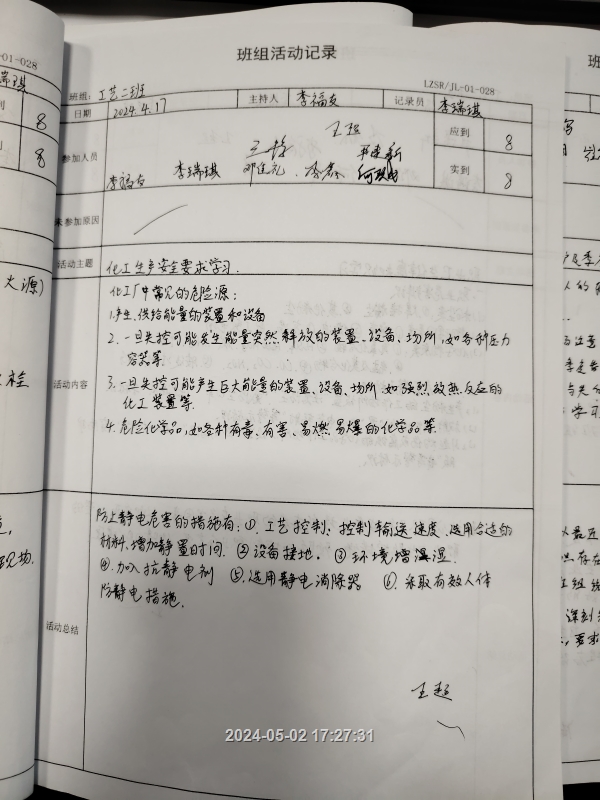 班组活动记录
LZSR/JL-01-028
班组：工艺二班
日期 2024.4.17 主持人 李福友 记录员 李瑞琪
参加人员 应到 8
王超
李福友 李瑞琪 实到 8
未参加原因
活动主题 化工生产安全要求学习.
活动内容
化工厂中常见的危险源：
1.产生、供给能量的装置和设备
2.一旦失控可能发生能量突然释放的装置、设备、场所，如各种压力
容器等
3.一旦失控可能产生巨大能量的装置、设备、场所 如强烈放热反应的
化工装置等.
4.危险化学品，如各种有毒、有害、易燃易爆的化学品等.
活动总结
防止静电危害的措施有：① 工艺控制：控制输送速度、选用合适的
材料、增加静置时间. ②设备接地. ③环境增温湿.
④.加入抗静电剂 ⑤.选用静电消除器 ⑥.采取有效人体
防静电措施.
王超
2024-05-02 17:27:31
-01-028
瑞琪
8
8
火源)
现场.